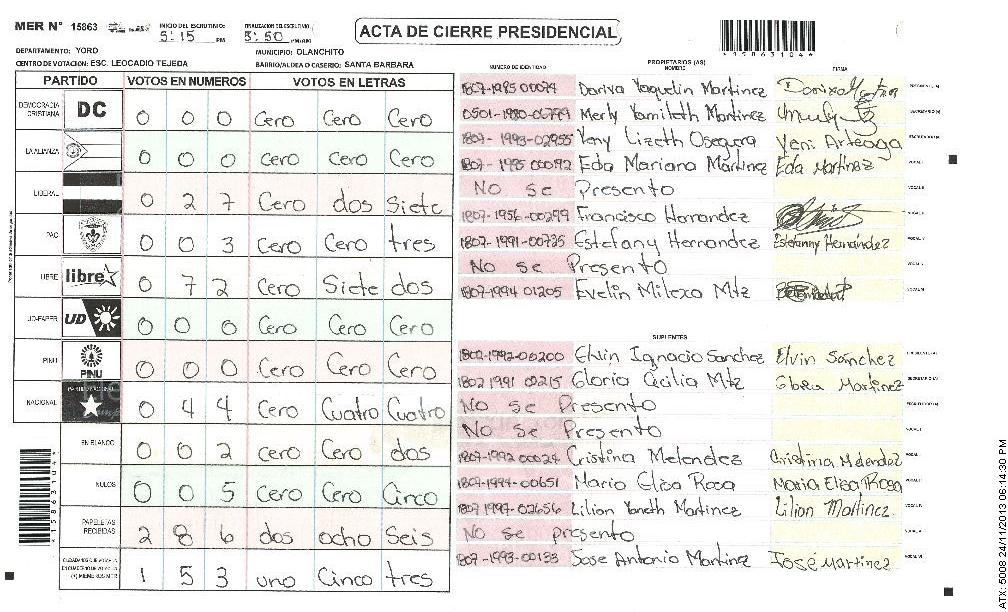 MER N° 15863 INICIO DEL ESCRUTINIO: 5:15 PM FINALIZACION DEL ESCRUTINIO: 5:50 PM/AM
ACTA DE CIERRE PRESIDENCIAL
*15863104*
DEPARTAMENTO: YORO MUNICIPIO: OLANCHITO
CENTRO DE VOTACION: ESC. LEOCADIO TEJEDA BARRIO/ALDEA O CASERIO: SANTA BARBARA
PARTIDO VOTOS EN NUMEROS VOTOS EN LETRAS
DEMOCRACIA CRISTIANA DC 0 0 0 Cero Cero Cero
LA ALIANZA 0 0 0 Cero Cero Cero
LIBERAL 0 2 7 Cero dos Siete
PAC 0 0 3 Cero Cero tres
LIBRE libre 0 7 2 Cero Siete dos
UD-FAPER UD 0 0 0 Cero Cero Cero
PINU PINU 0 0 0 Cero Cero Cero
NACIONAL 0 4 4 Cero Cuatro Cuatro
EN BLANCO 0 0 2 Cero Cero dos
NULOS 0 0 5 Cero Cero Cinco
PAPELETAS RECIBIDAS 2 8 6 dos ocho Seis
1 5 3 uno Cinco tres
*15863104*
NUMERO DE IDENTIDAD PROPIETARIOS (AS) NOMBRE FIRMA
1807-1985 00074 Dariva Yaquelin Martinez
0501-1980-06799 Merly Yamileth Martinez
1807-1993-02955 Yeny Lizeth Oseguera Yeni Arteaga
1807-1995 00092 Eda Mariana Martinez Eda Martinez
No se Presento
1807-1956-00299 Francisco Hernandez
1807-1991-00735 Estefany Hernandez Estefanny Hernández
No se Presento
1807-1994 01205 Evelin Milexa Mtz
SUPLENTES
1802-1992-00200 Elvin Ignacio Sanchez Elvin Sánchez
1802 1991 00215 Gloria Cecilia Mtz Gloria Martinez
No se Presento
No se Presento
1807-1992 00024 Cristina Melendez Cristina Melendez
1807-1994-00651 Maria Elisa Rosa Maria Elisa Rosa
1807 1997-02656 Lilian Yaneth Martinez Lilian Martinez
No se presento
1807-1993-00133 Jose Antonio Martinez José Martinez
ATX: 5008 24/11/2013 06:14:30 PM